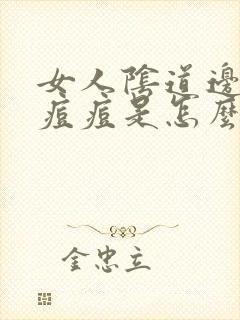 女人陰道邊
痘痘是怎麼
金忠立